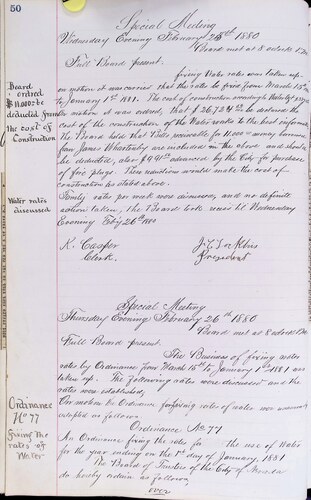 50
Special Meeting
Wednesday Evening February 25th 1880
Board met at 8 oclock P.M.
Full Board present.
fixing Water rates was taken up.
on motion it was ordered that the rates be fixed from March 15th
to January 1st 1881. The cost of construction
motion it was ordered, that $ be deducted the
cost of the construction of the Water Works to the best information
The Board held that Bills receivable for 11.000 money borrowed
from James are included in the above and should
be deducted, also $991 advanced by the City for purchase
of fire plugs. These reductions would make the cost of
construction as stated above.
rates per week was discussed, and no definite
action taken, the Board took recess til Wednesday
Evening Feby 26th 1880
K. Casper
Clerk.
President
Board
ordered
$11,000 be
deducted from
the cost of
Construction
Water rates
discussed
Special Meeting
Thursday Evening February 26th 1880
Board met at 8 oclock P.M.
Full Board present.
The Business of fixing water
rates by Ordinance from March 15th to January 1st 1881 was
taken up. The following rates were discussed and the
rates was established,
On motion the Ordinance fixing rates of water was
adopted as follows
Ordinance
No 77
fixing the
rates of
Water
Ordinance No. 77
An Ordinance fixing the rates for the use of Water
for the year ending on the 1st day of January, 1881
The Board of Trustees of the City of Nevada
do hereby ordain as follows,
over